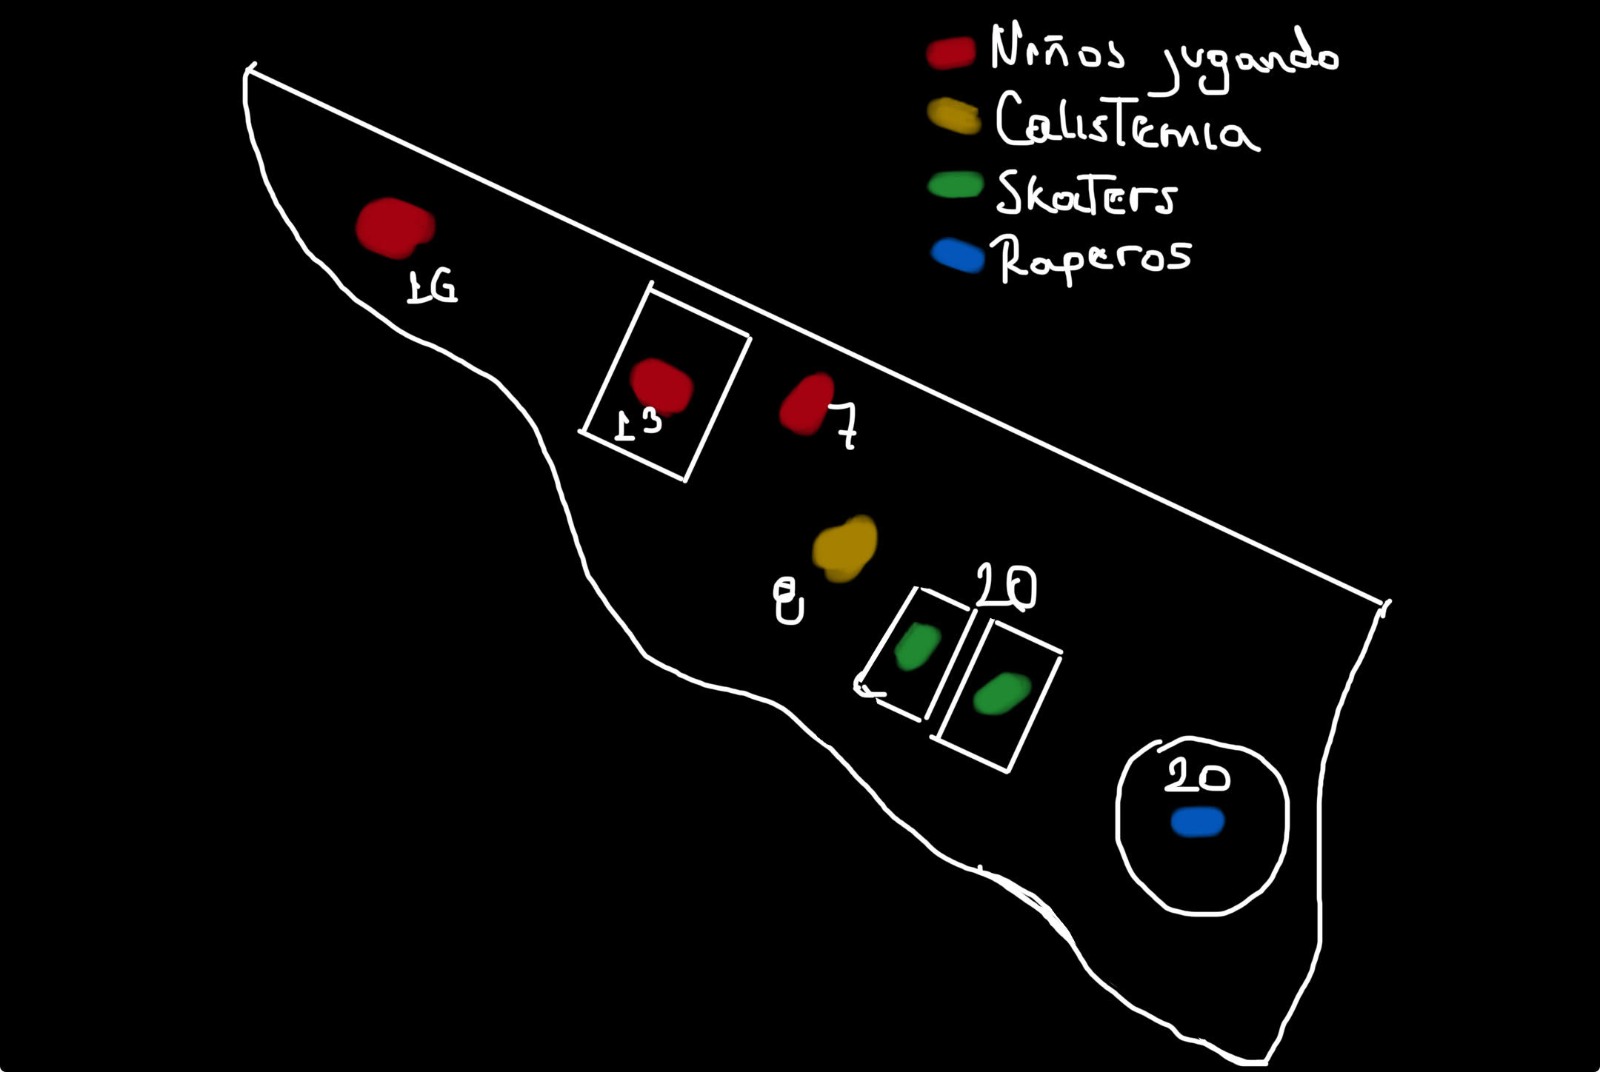 Niños jugando
Calistemia
Skaters
Raperos
16
13
7
8
20
20